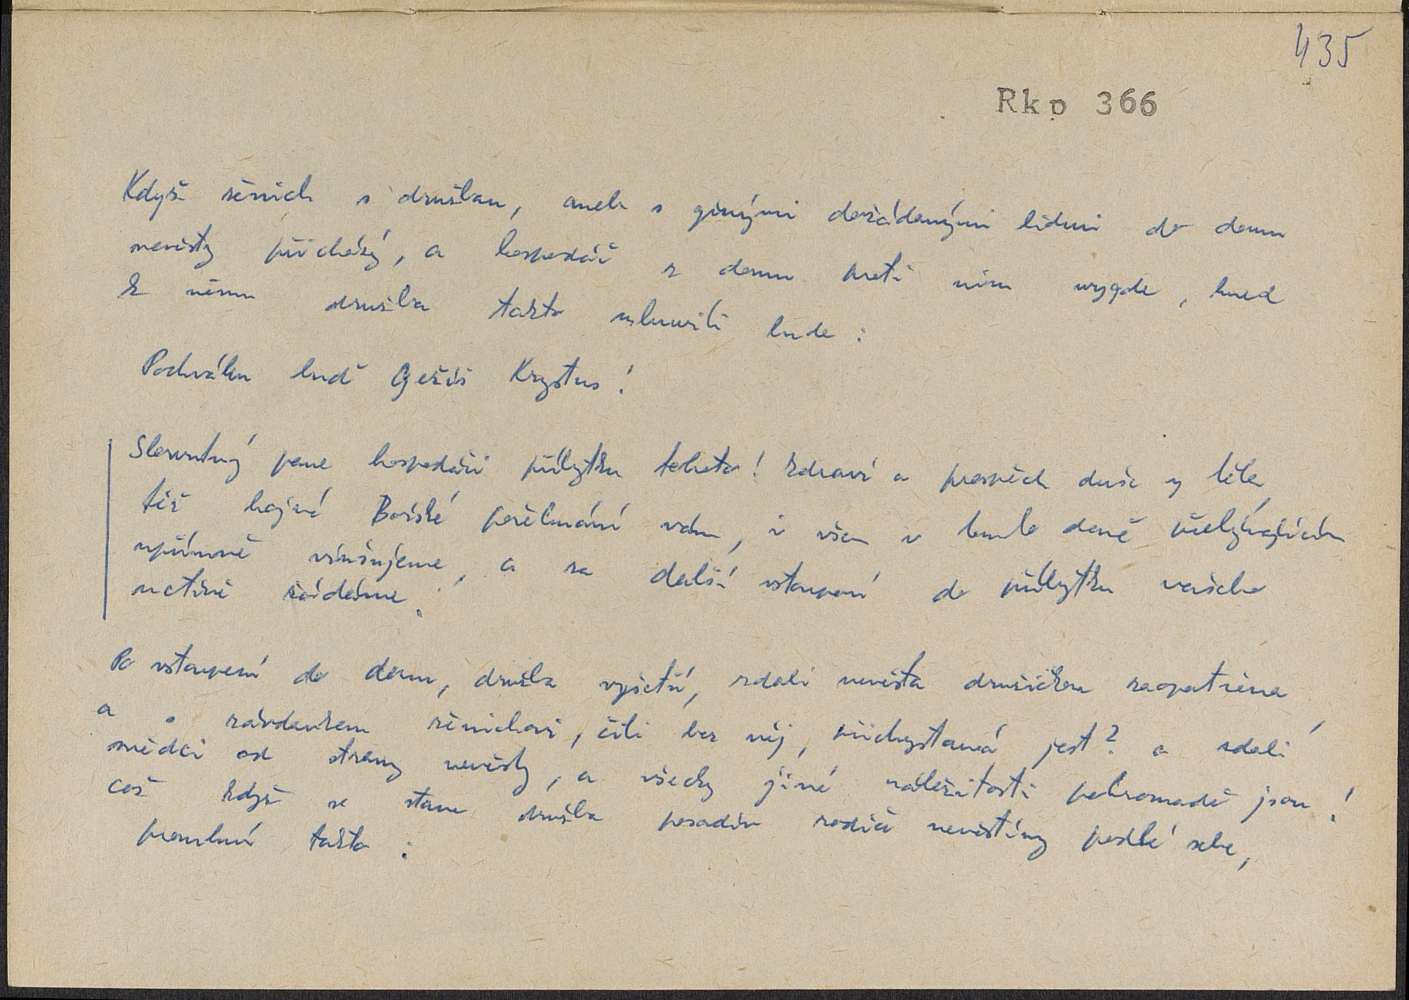 435
Rkp 366
Když ženich s družbau, aneb s ginými dožádanými lidmi do domu
nevěsty přichází, a hospodář z domu proti nim wygde, hned
k němu družba takto mluwiti bude:
Pochválen buď Gežiš Krystus!
Slovutný pane hospodáři příbytku tohoto! zdraví a prospěch duše y těla
též hojné Božské požehnání vám, i všem v tomto domě přebývajícím
upřimně vinšujeme, a za další vstoupení do příbytku vašeho
uctivě žádáme.
Po vstoupení do domu, družba vyšetří, zdali nevěsta družičkou zaopatřena,
a s zavdankem ženichovi, čili bez něj, přichystaná jest? a zdali
svědci od strany nevěsty, a všecky jiné náležitosti pohromadě jsou!
což když se stane družba posadiv rodiče nevěstiny podlé sebe,
promluví takto: